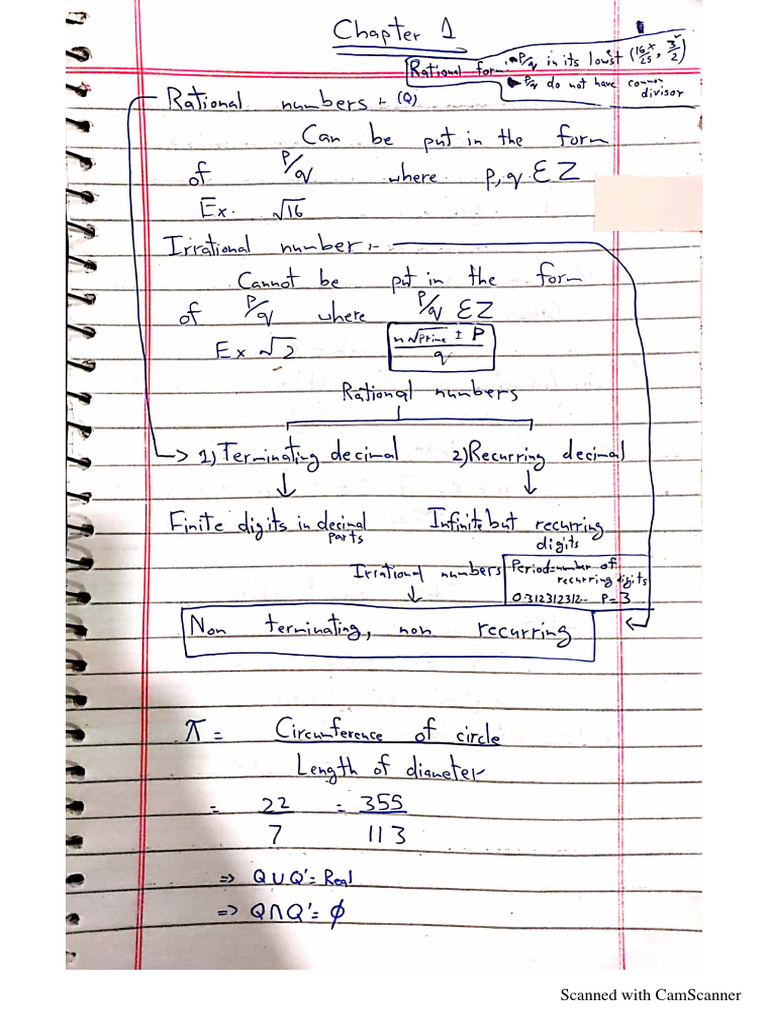 Chapter 1
Rational form • P/q in its lowst (16/25 x, 3/2 ✓)
• P/q do not have common divisor
Rational numbers :- (Q)
Can be put in the form
of P/q where p, q ε Z
Ex. √16
Irrational number :-
Cannot be put in the form
of P/q where P/q ε Z
Ex √2
n√prime ± P / q
Rational numbers
1) Terminating decimal 2) Recurring decimal
Finite digits in decimal parts
Infinite but recurring digits
Irrational numbers
Period = number of
recurring digits
0.312312312.. P=3
Non terminating, non recurring
π = Circumference of circle / Length of diameter
= 22/7 = 355/113
=> Q∪Q' = Real
=> Q∩Q' = ϕ
Scanned with CamScanner